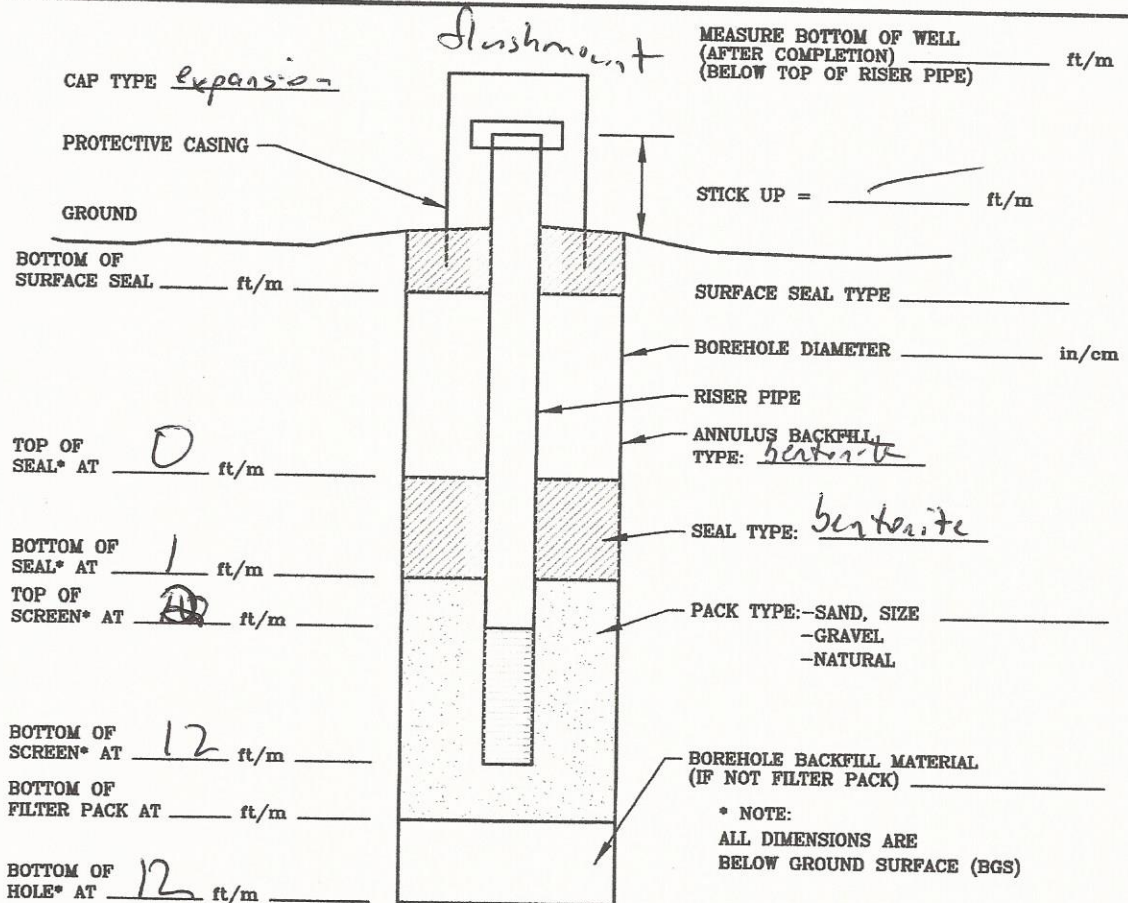 flushmount
MEASURE BOTTOM OF WELL
(AFTER COMPLETION) ________ ft/m
(BELOW TOP OF RISER PIPE)
CAP TYPE expansion
PROTECTIVE CASING
STICK UP = ________ ft/m
GROUND
BOTTOM OF
SURFACE SEAL ______ ft/m ______
SURFACE SEAL TYPE ________
BOREHOLE DIAMETER ________ in/cm
RISER PIPE
ANNULUS BACKFILL
TYPE: bentonite
TOP OF
SEAL* AT 0 ft/m ______
SEAL TYPE: bentonite
BOTTOM OF
SEAL* AT 1 ft/m ______
TOP OF
SCREEN* AT ft/m ______
PACK TYPE:-SAND, SIZE ________
-GRAVEL
-NATURAL
BOTTOM OF
SCREEN* AT 12 ft/m ______
BOTTOM OF
FILTER PACK AT ______ ft/m ______
BOREHOLE BACKFILL MATERIAL
(IF NOT FILTER PACK) ________
* NOTE:
ALL DIMENSIONS ARE
BELOW GROUND SURFACE (BGS)
BOTTOM OF
HOLE* AT 12 ft/m ______